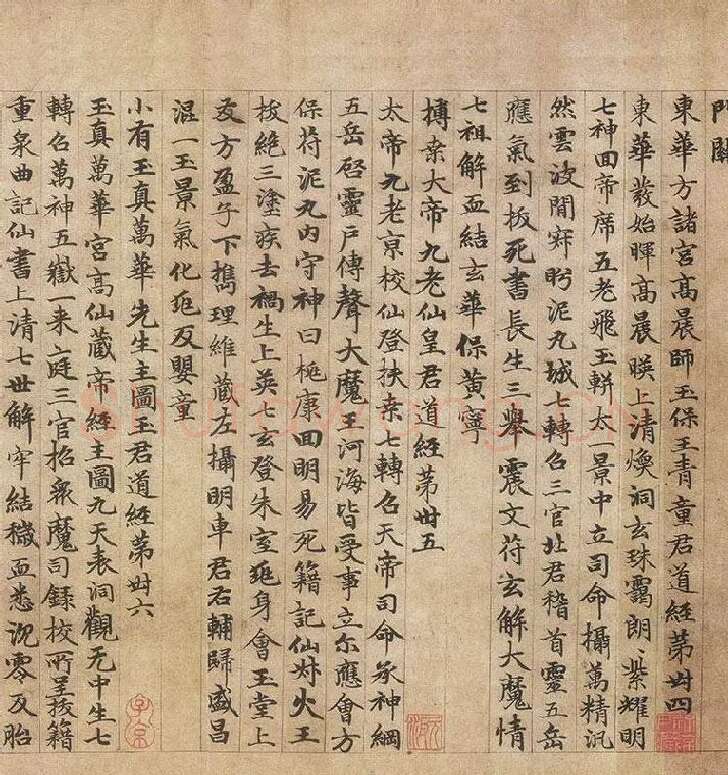 東華方諸宮高晨師玉保王青童君道經第卅四
東華發始暉高晨暎上清煥洞玄珠靄朗〻紫耀明
七神回帝席五老飛玉軿太一景中立司命攝萬精汎
然雲波開寂眄泥丸城七轉召三官北君稽首靈五岳
應氣到拔死書長生三舉震文符玄解大魔情
七祖解血結玄華保黃寧
搏桒大帝九老仙皇君道經第卅五
太帝九老京校仙登扶桒七轉召天帝司命承神綱
五岳啓靈戶傳聲大魔王河海皆受事立尒應會方
保苻泥丸內守神曰椸康回明易死籍記仙火王
拔絕三塗疾去禍生上英七玄登朱室兆身會玉堂上
友方盈子下攜理維藏左攝明車君右輔歸盛昌
混一玉景氣化兆反嬰童
小有玉真萬華先生主圖玉君道經第卅六
玉真萬華宮高仙藏帝經主圖九天表洞觀无中生七
轉召萬神五嶽一来庭三官招眾魔司録校所呈拔籍
重泉曲記仙書上清七世解牢結穢血悉沉零反胎